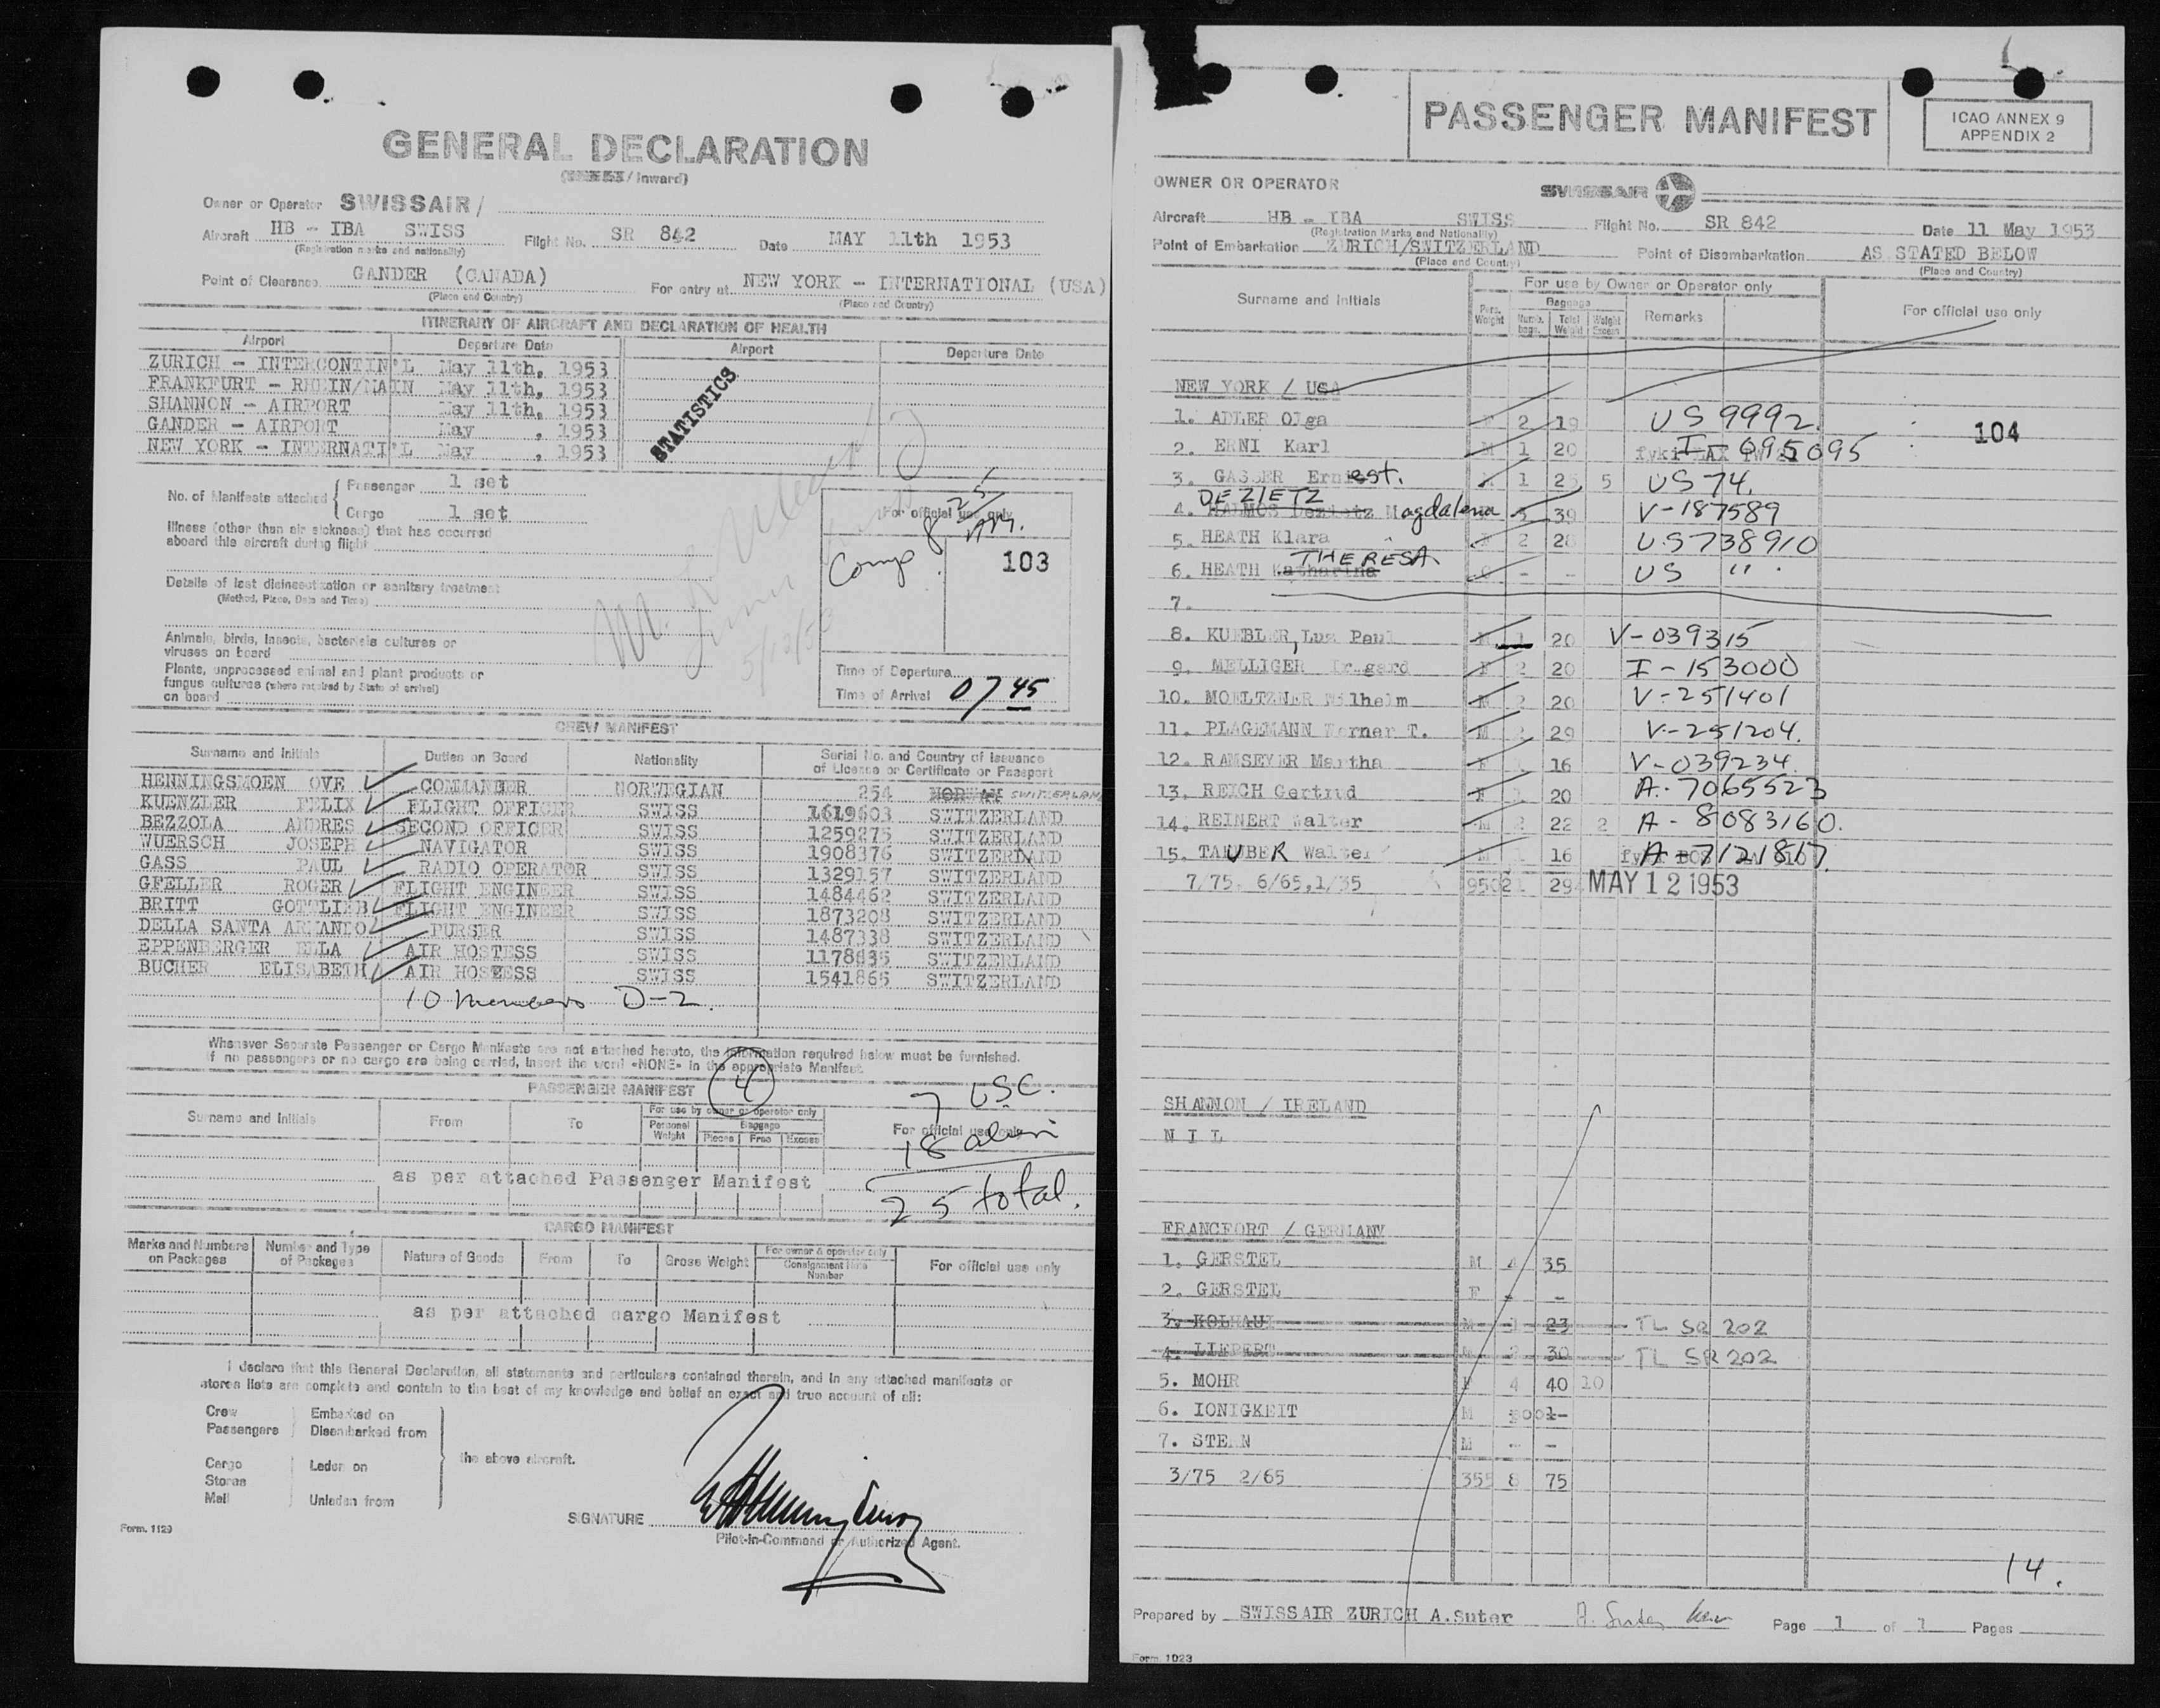 GENERAL DECLARATION
/ Inward)
Owner or Operator SWISSAIR /
Aircraft HB - IBA SWISS Flight No. SR 842 Date MAY 11th 1953
(Registration marks and nationality)
Point of Clearance GANDER (CANADA) For entry at NEW YORK - INTERNATIONAL (USA)
(Place and Country) (Place and Country)
ITINERARY OF AIRCRAFT AND DECLARATION OF HEALTH
Airport Departure Date Airport Departure Date
ZURICH - INTERCONTIN'L May 11th, 1953
FRANKFURT - RHEIN/MAIN May 11th, 1953
SHANNON - AIRPORT May 11th, 1953
GANDER - AIRPORT May , 1953
NEW YORK - INTERNATI'L May , 1953
STATISTICS
No. of Manifests attached Passenger 1 set
Cargo 1 set
Illness (other than air sickness) that has occurred
aboard this aircraft during flight
Details of last disinsectization or sanitary treatment
(Method, Place, Date and Time)
Animals, birds, insects, bacterials cultures or
viruses on board
Plants, unprocessed animal and plant products or
fungus cultures (where required by State of arrival)
on board
5/12/53
For official use only
25
Comp 8
103
Time of Departure
Time of Arrival 0745
CREW MANIFEST
Surname and Initials Duties on Board Nationality Serial No. and Country of Issuance
of License or Certificate or Passport
HENNINGSMOEN OVE COMMANDER NORWEGIAN 254 SWITZERLAND
KUENZLER FELIX FLIGHT OFFICER SWISS 1619603 SWITZERLAND
BEZZOLA ANDRES SECOND OFFICER SWISS 1259275 SWITZERLAND
WUERSCH JOSEPH NAVIGATOR SWISS 1908376 SWITZERLAND
GASS PAUL RADIO OPERATOR SWISS 1329157 SWITZERLAND
GFELLER ROGER FLIGHT ENGINEER SWISS 1484462 SWITZERLAND
BRITT GOTTLIEB FLIGHT ENGINEER SWISS 1873208 SWITZERLAND
DELLA SANTA ARMANDO PURSER SWISS 1487338 SWITZERLAND
EPPENBERGER ELLA AIR HOSTESS SWISS 1178635 SWITZERLAND
BUCHER ELISABETH AIR HOSTESS SWISS 1541865 SWITZERLAND
10 members D-2.
Whenever Separate Passenger or Cargo Manifests are not attached hereto, the information required below must be furnished.
If no passengers or no cargo are being carried, insert the word «NONE» in the appropriate Manifest.
PASSENGER MANIFEST
4
7 USC.
Surname and Initials From To For use by owner or operator only For official use only
Personal Weight Baggage
Pieces Free Excess
18 alien
as per attached Passenger Manifest
25 total.
CARGO MANIFEST
Marks and Numbers on Packages Number and Type of Packages Nature of Goods From To Gross Weight For owner & operator only For official use only
Consignment Note Number
as per attached cargo Manifest
I declare that this General Declaration, all statements and particulars contained therein, and in any attached manifests or
stores lists are complete and contain to the best of my knowledge and belief an exact and true account of all:
Crew Embarked on
Passengers Disembarked from
the above aircraft.
Cargo Laden on
Stores
Mail Unladen from
SIGNATURE
Pilot-in-Command or Authorized Agent.
Form. 1129
PASSENGER MANIFEST
ICAO ANNEX 9
APPENDIX 2
OWNER OR OPERATOR SWISSAIR
Aircraft HB - IBA SWISS Flight No. SR 842 Date 11 May 1953
(Registration Marks and Nationality)
Point of Embarkation ZURICH/SWITZERLAND Point of Disembarkation AS STATED BELOW
(Place and Country) (Place and Country)
Surname and Initials For use by Owner or Operator only For official use only
Pers. Weight Baggage Remarks
Numb. bags. Total Weight Weight Excess
NEW YORK / USA
1. ADLER Olga F 2 19 US 9992
104
2. ERNI Karl M 1 20 I-695095
3. GASSER Ernest. 1 25 5 US 74.
DEZIETZ
4. HALMOS Magdalena 3 39 V-187589
5. HEATH Klara 2 28 US738910
THERESA
6. HEATH Katharina C - - US "
7.
8. KUEBLER, Lus Paul M 1 20 V-039315
9. MELLIGER Irmgard F 2 20 I-153000
10. MOELTZNER Wilhelm M 2 20 V-251401
11. PLAGEMANN Werner T. M 2 29 V-251204.
12. RAMSEYER Martha F 1 16 V-039234.
13. REICH Gertrud F 1 20 A-7065523
14. REINERT Walter M 2 22 2 A-8083160.
15. TAEUBER Walter M 1 16 A-7121867.
7/75. 6/65,1/35 950 21 29 MAY 12 1953
SHANNON / IRELAND
N I L
FRANCFORT / GERMANY
1. GERSTEL M 4 35
2. GERSTEL F - -
3. KOLHAUT M 3 23 TL SR 202
4. LIEPERT M 2 30 TL SR 202
5. MOHR F 4 40 10
6. IONIGKEIT M pool-
7. STERN M - -
3/75 2/65 355 8 75
14.
Prepared by SWISSAIR ZURICH A.Suter A. Suter Page 1 of 1 Pages
Form 1023